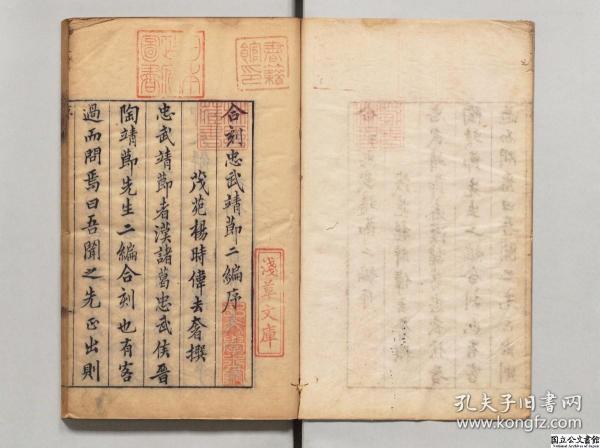 合刻忠武靖節二編序
茂苑楊時偉去奢撰
忠武靖節者漢諸葛忠武侯晉
陶靖節先生二編合刻也有客
過而問焉曰吾聞之先正出則
淺草文庫
書籍館印
圖書
孔夫子旧书网
www.kongfz.com
国立公文書館
National Archives of Japan